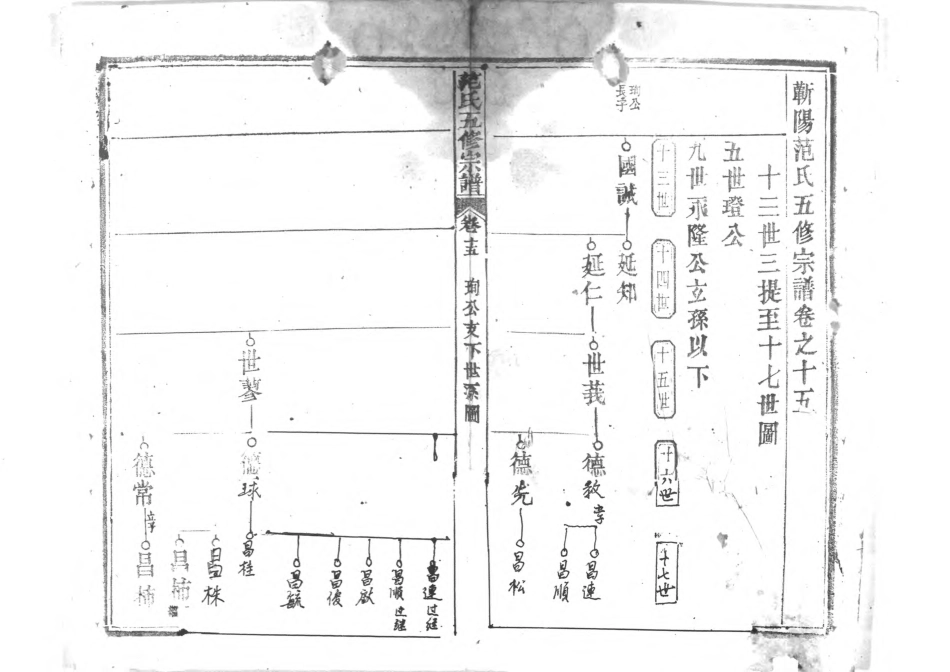 蘄陽范氏五修宗譜卷之十五
十三世三提至十七世圖
五世璒公
九世永隆公玄孫以下
十三世
十四世
十五世
十六世
十七世
珣公
長子
國誠
延知
延仁
世莪
德教
德先
昌連
昌順
昌松
范氏五修宗譜
卷十五
珣公支下世系圖
昌連过继
昌順过继
昌啟
昌俊
昌毓
世蓼
德球
昌桂
昌株
昌柿
德常
昌柿